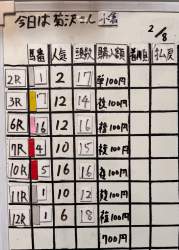 今日は菊沢さん 小倉 2/8
馬番 人気 頭数 購入額 着順 払戻
2R 1 2 17 単100円
3R 7 12 14 複100円
6R 16 12 16 複100円
7R 4 10 15 複100円
10R 5 16 16 複100円
11R 1 10 12 複100円
12R 1 6 18 複100円
700円